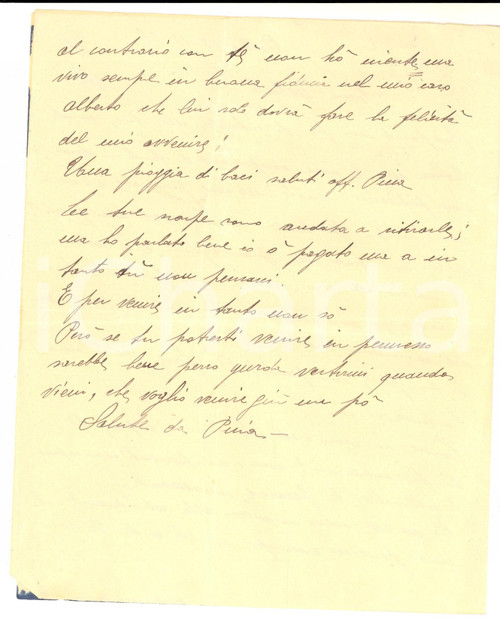 al contrario con tè non hò niente ma
vivo sempre in buona fiducia nel mio caro
Alberto che lui solo dovrà fare la felicità
del mio avvenire!
Una pioggia di baci saluti aff. Pina
Le tue scarpe sono andata a ritirarle;
ma ho parlato bene io ò pagato ma a in
tanto tù non pensarci.
E per venire in tanto non sò
Però se tu potresti venire in permesso
sarebbe bene perro guarda vertirmi quando
vieni, che voglio venire giù un pò
Saluti da Pina